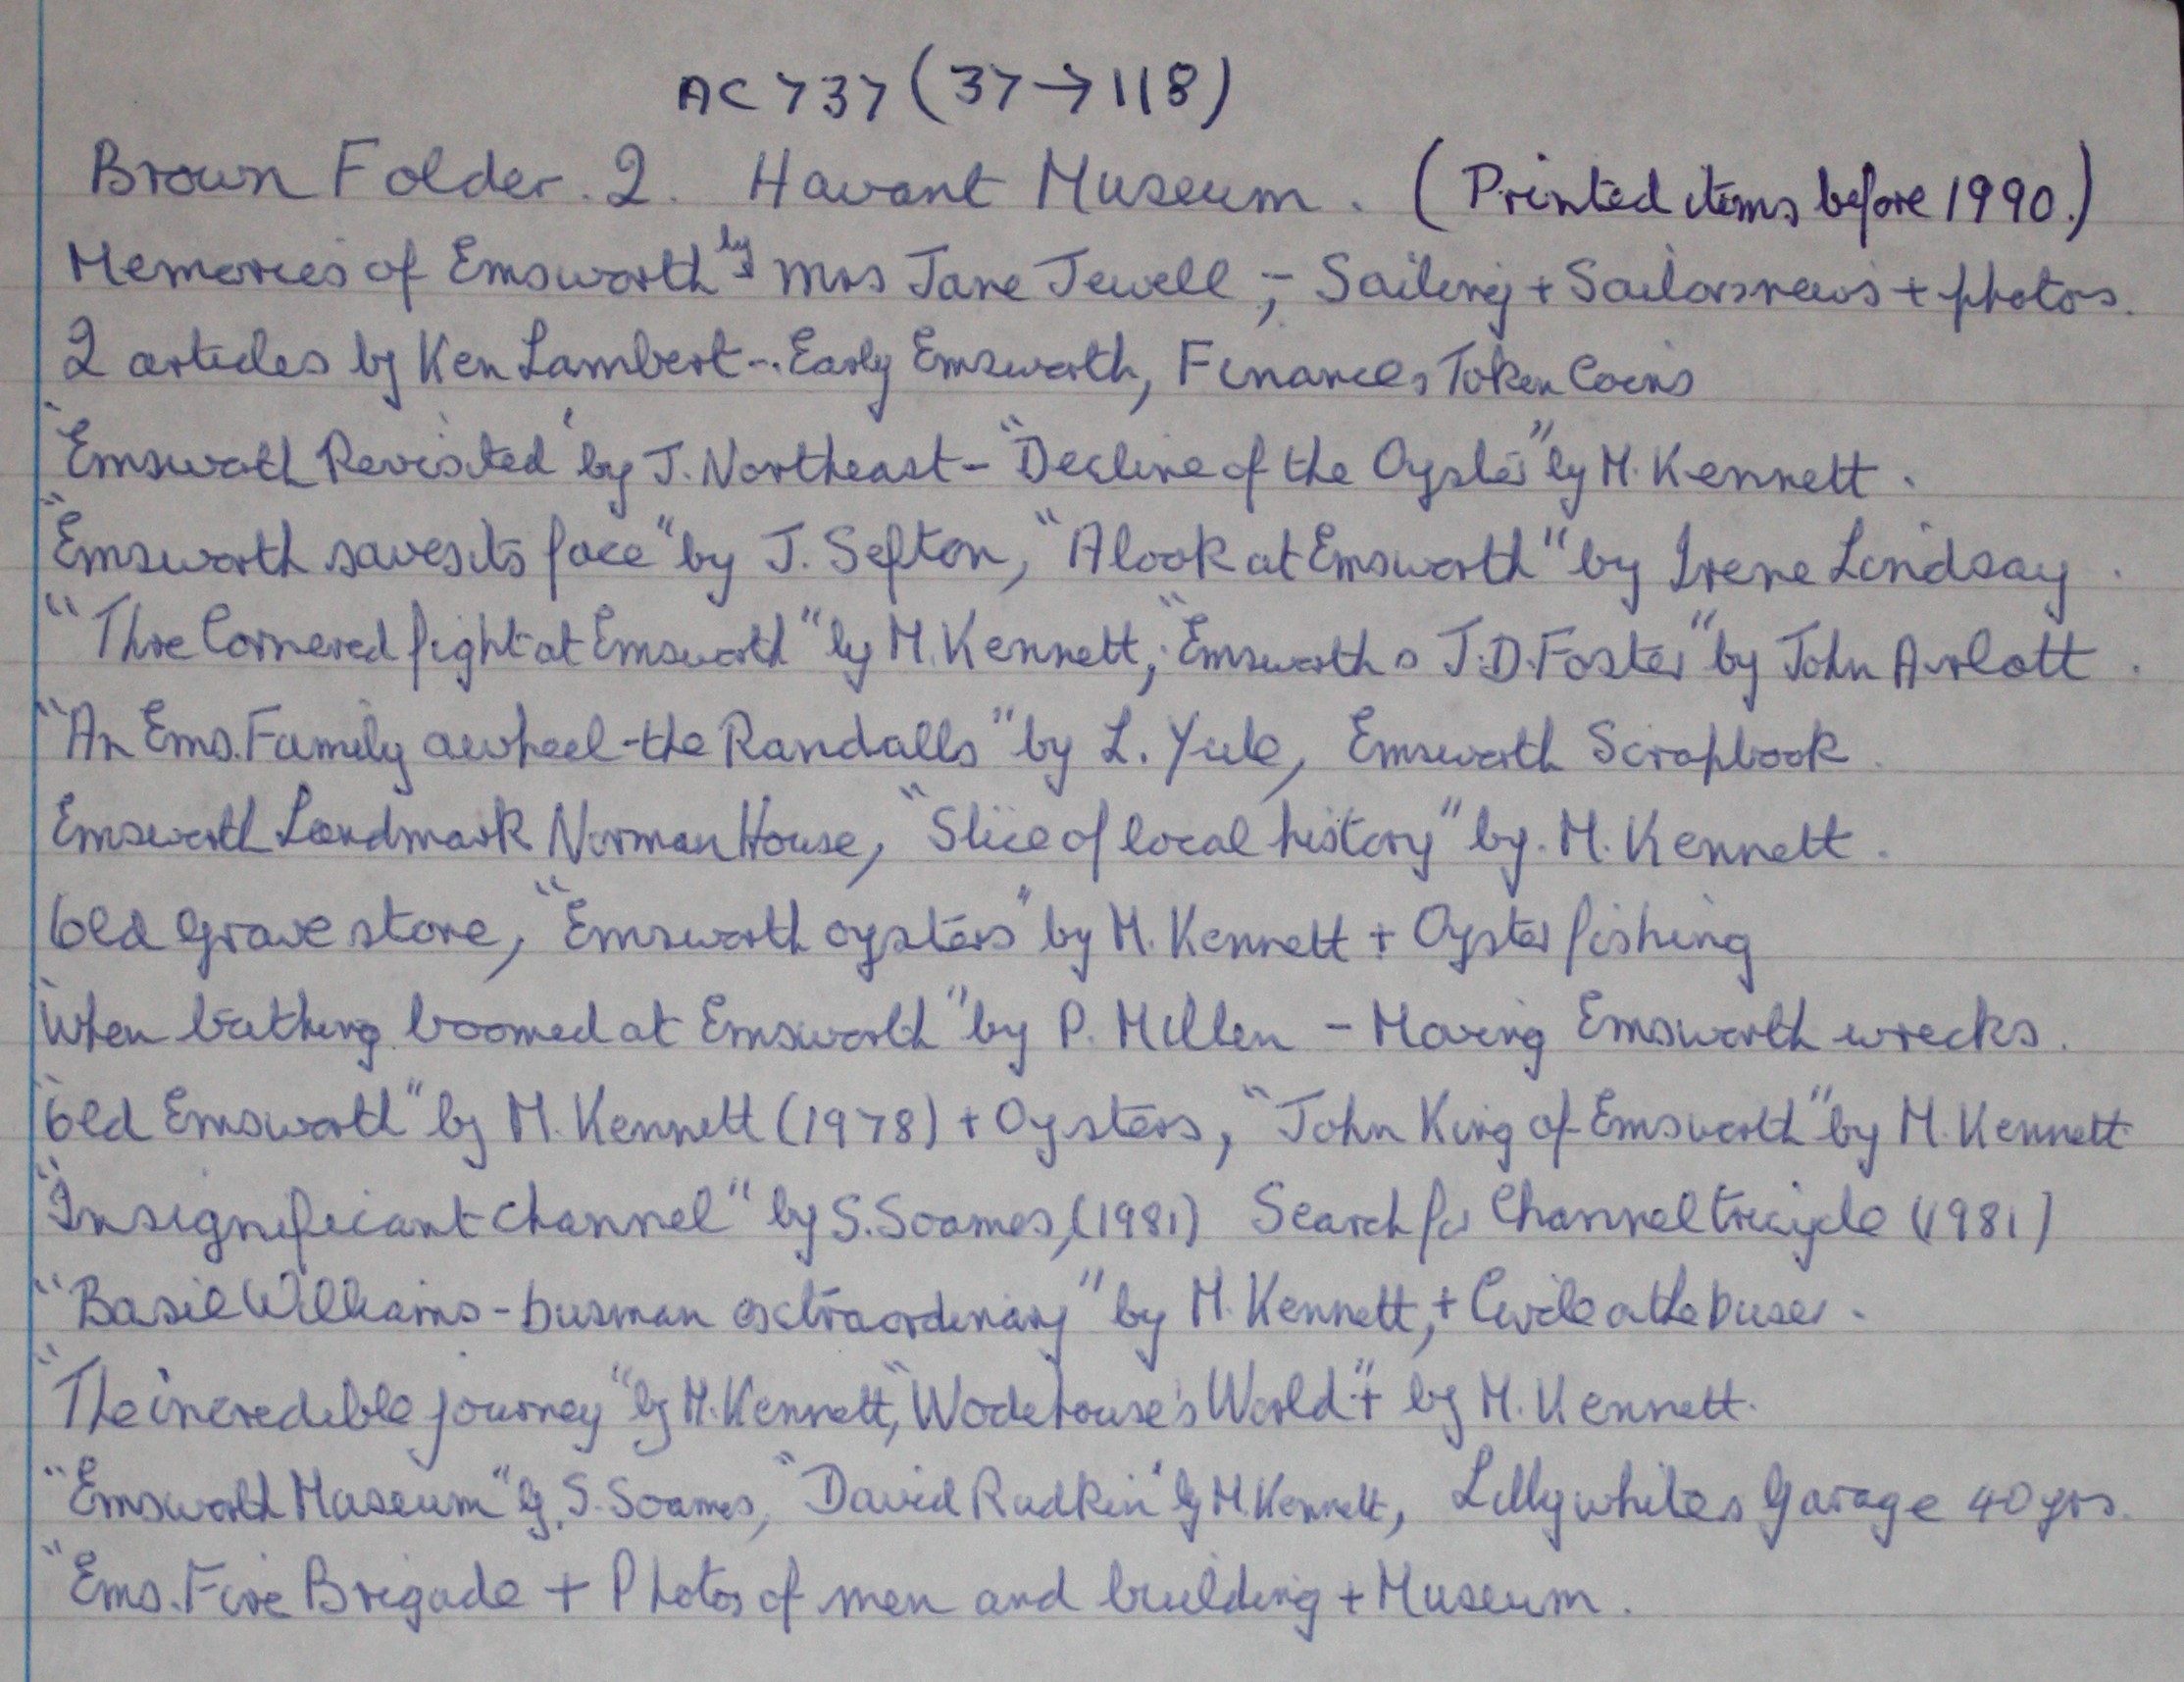 AC 737 (37 → 118)
Brown Folder. 2. Havant Museum. (Printed items before 1990.)
Memories of Emsworth by Mrs Jane Jewell ;- Sailing + Sailors news + photos.
2 articles by Ken Lambert -. Early Emsworth, Finances Token Coins
"Emsworth Revisited' by J. Northeast - "Decline of the Oyster" by M. Kennett.
"Emsworth saves its face" by J. Sefton, "A look at Emsworth" by Irene Lindsay.
"Three Cornered fight at Emsworth" by M. Kennett, "Emsworth's J.D. Foster" by John Arlott.
"An Ems. Family awheel - the Randalls" by L. Yule, Emsworth Scrapbook.
Emsworth Landmark Norman House, "Slice of local history" by. M. Kennett.
Old Grave stone, "Emsworth oysters" by M. Kennett + Oyster fishing
"When bathing boomed at Emsworth" by P. Millen - Moving Emsworth wrecks.
"Old Emsworth" by M. Kennett (1978) + Oysters, "John King of Emsworth" by M. Kennett
"Insignificant channel" by S. Soames, (1981) Search for Channel tricycle (1981)
"Basil Williams - busman extraordinary" by M. Kennett, +
"The incredible journey" by M. Kennett, "Wodehouse's World" + by M. Kennett.
"Emsworth Museum" by S. Soames, "David Rudkin" by M. Kennett, Lillywhites Garage 40 yrs.
"Ems. Fire Brigade + Photos of men and building + Museum.